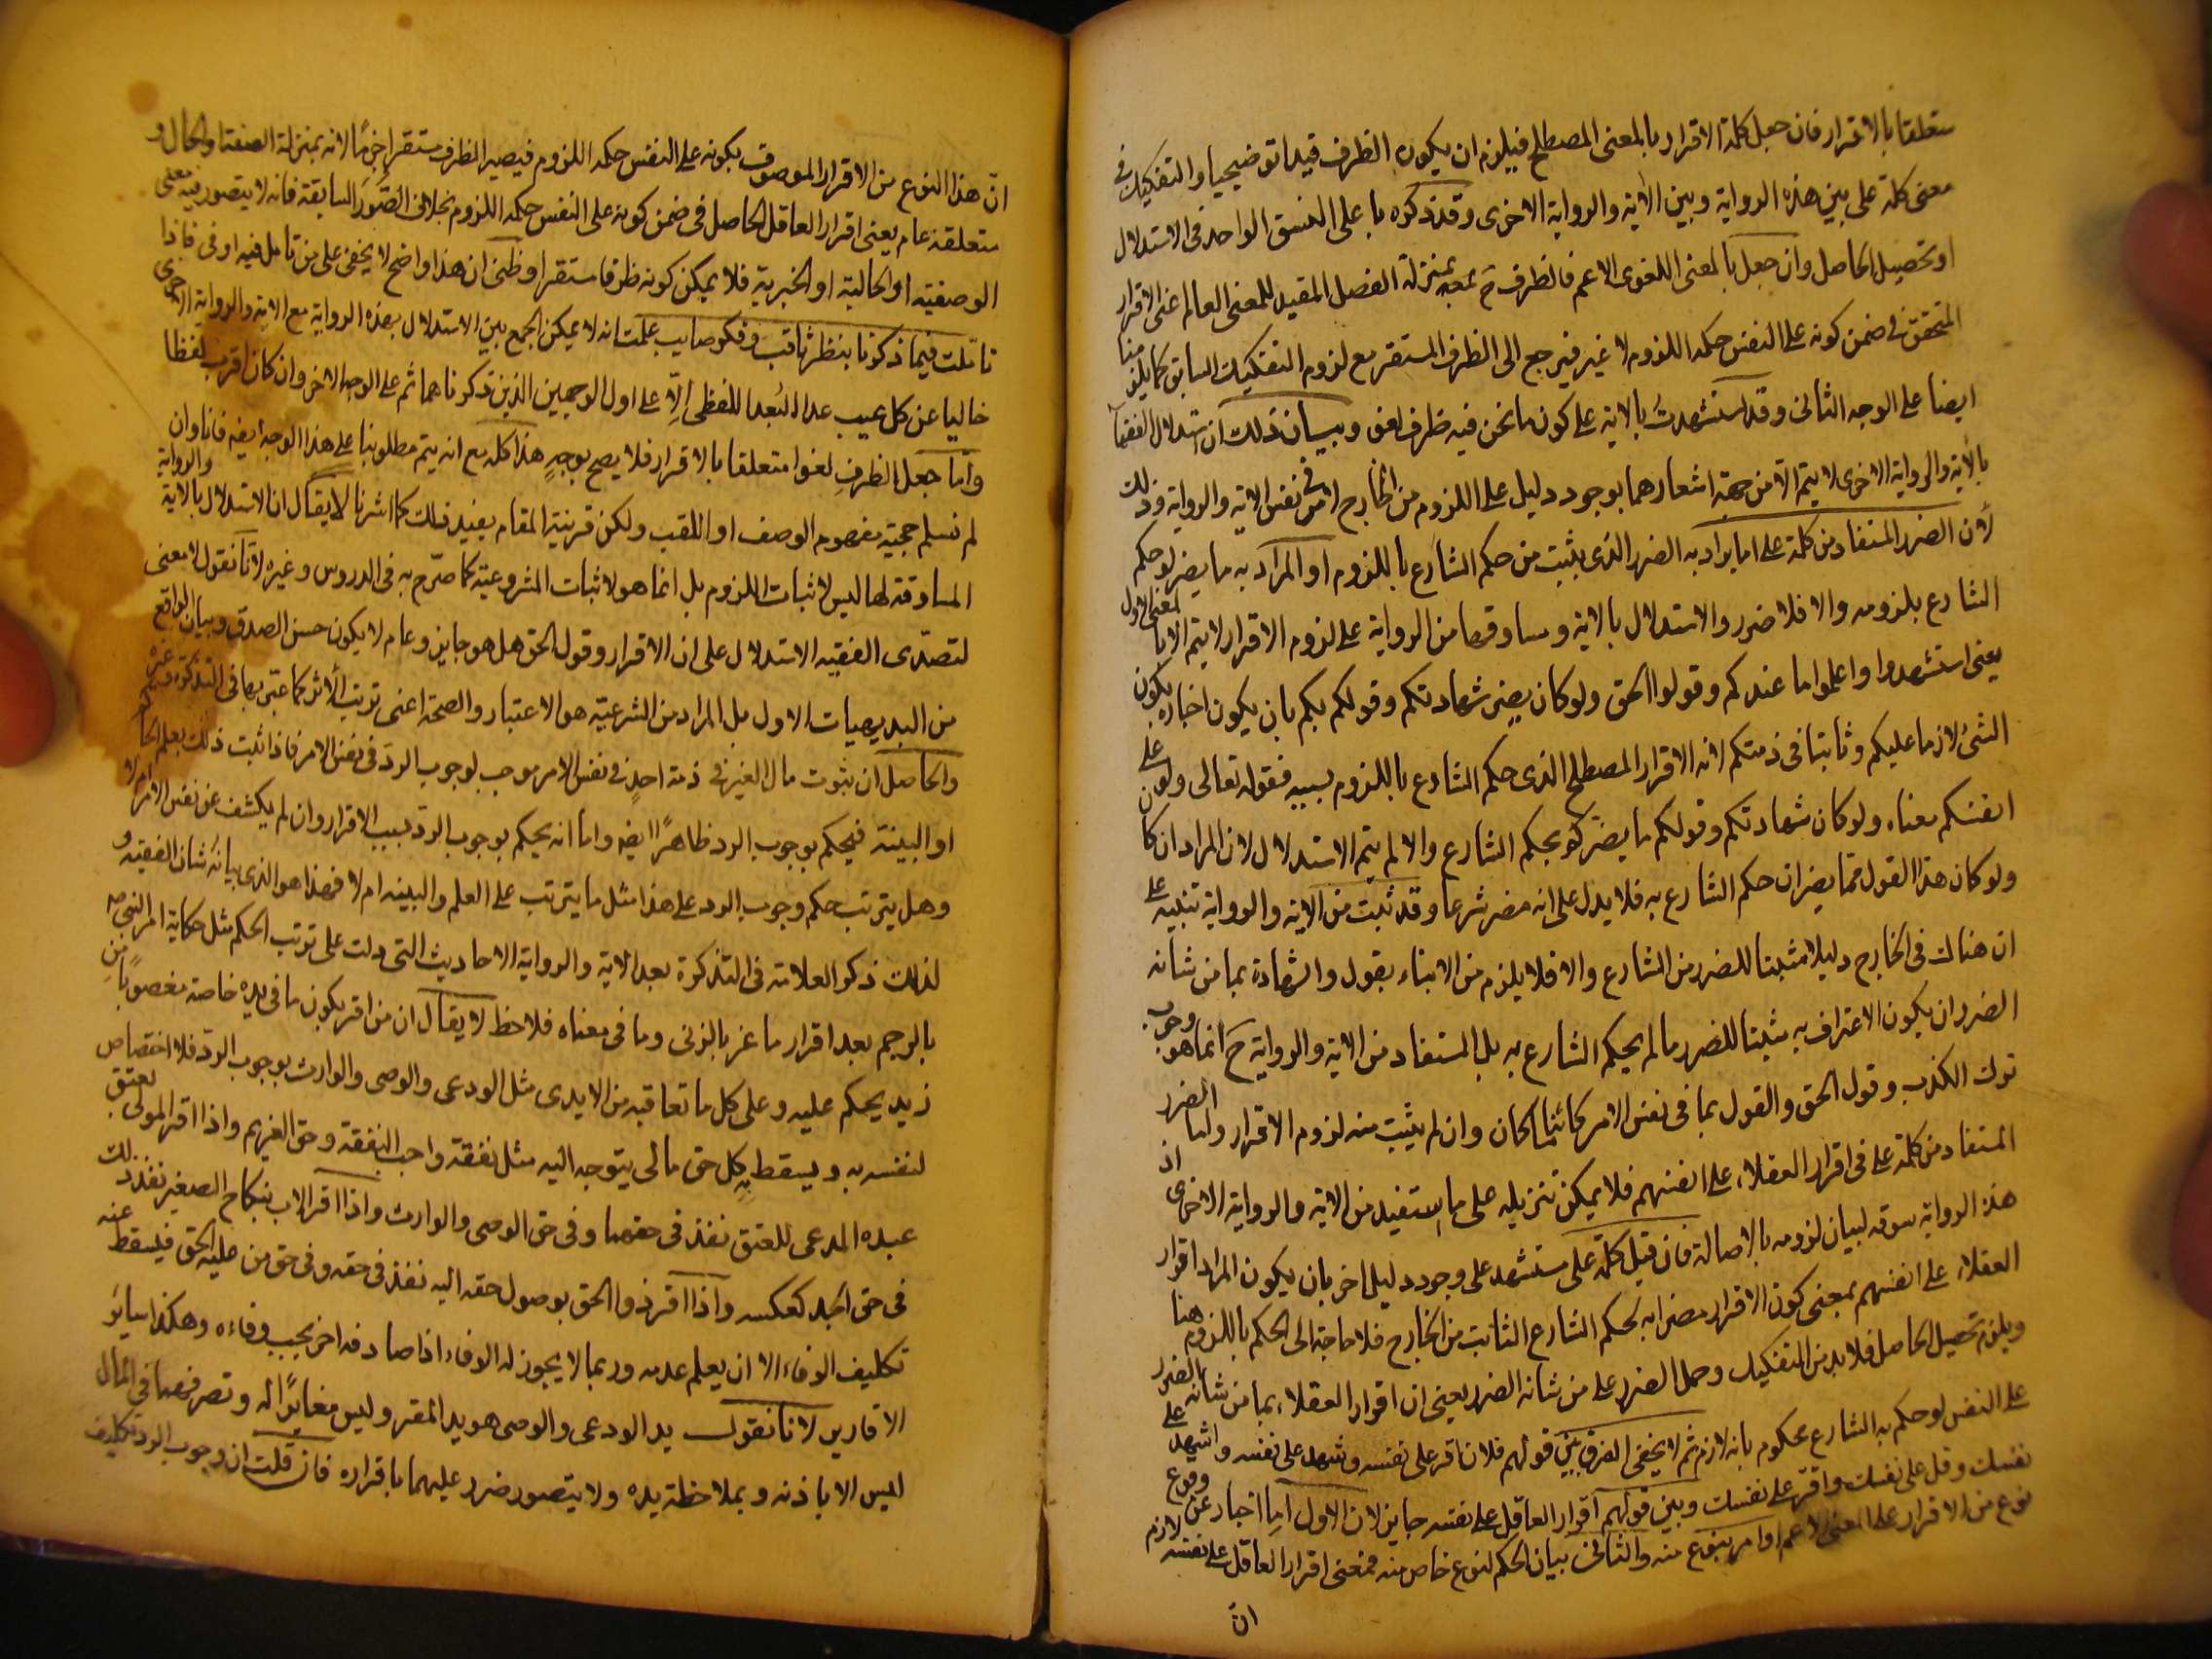 متعلقا بالاقرار فان جعل كلمة الاقرار بالمعنى المصطلح فيلزم ان يكون الظرف قيدا توضيحيا والتفكيك في
معنى كلمة على بين هذه الرواية وبين الاية والرواية الاخرى وقد ذكروها على النسق الواحد في الاستدلال
او تحصيل الحاصل وان جعل بالمعنى اللغوي الاعم فالظرف ح بمنزلة الفصل المقيد للمعنى العام اعنى الاقرار
المتحقق في ضمن كونه على النفس حكمه اللزوم لا غير فيرجع الى الظرف المستقر مع لزوم التفكيك السابق كما يلزم هنا
ايضا على الوجه الثانى وقد استشهدت بالاية على كون ما نحن فيه ظرف لغو وبيان ذلك ان استدلال الفقهاء
بالاية والرواية الاخرى لا يتم الا من جهة اشعارهما بوجود دليل على اللزوم من الخارج لا من نفس الاية والرواية وذلك
لان الضرر المستفاد من كلمة على اما يراد به الضرر الذى يثبت من حكم الشارع باللزوم او المراد به ما يضر لو حكم
الشارع بلزومه والا فلا ضرر والاستدلال بالاية ومساوقها من الرواية على لزوم الاقرار لا يتم الا بالمعنى الاول
يعنى استشهدوا واعلموا ما عندكم وقولوا الحق ولو كان يضر شهادتكم وقولكم بكم بان يكون اخباره بكون
الشئ لازما عليكم وثابتا في ذمتكم لانه الاقرار المصطلح الذى حكم الشارع باللزوم بسببه فقوله تعالى ولو على
انفسكم معناه ولو كان شهادتكم وقولكم ما يضركم بحكم الشارع والا لم يتم الاستدلال لان المراد ان كان
ولو كان هذا القول مما يضر ان حكم الشارع به فلا يدل على انه مضر شرعا وقد ثبت من الاية والرواية تنبيه على
ان هناك في الخارج دليلا مثبتا للضرر من الشارع والا فلا يلزم من الابناء بقول والشهادة بما من شانه
الضرر ان يكون الاعتراف به مثبتا للضرر ما لم يحكم الشارع به بل المستفاد من الاية والرواية ح انما هو وجوب
ترك الكذب وقول الحق والقول بما في نفس الامر كائنا ما كان وان لم يثبت منه لزوم الاقرار واما الضرر
المستفاد من كلمة على في اقرار العقلاء على انفسهم فلا يمكن تنزيله على ما استفيد من الاية والرواية الاخرى اذ
هذه الرواية سوقه لبيان لزومه بالاصالة فان قيل كلمة على مستشهد على وجود دليل اخر بان يكون المراد اقرار
العقلاء على انفسهم بمعنى كون الاقرار مضرا به بحكم الشارع الثابت من الخارج فلا حاجة الى الحكم باللزوم هنا
ويلزم تحصيل الحاصل فلا بد من التفكيك وحمل الضرر على من شانه الضرر يعنى ان اقرار العقلاء بما من شانه الضرر
على النفس لو حكم به الشارع محكوم بانه لازم ثم لا يخفى الفرق بين قولهم فلان اقر على نفسه وشهد على نفسه واشهد على
نفسك وقل على نفسك واقر على نفسك وبين قولهم اقرار العاقل على نفسه جايز لان الاول اما اخبار عن وقوع
نوع من الاقرار على المعنى الاعم او امر بنوع منه والثانى بيان الحكم لنوع خاص منه فمعنى اقرار العاقل على نفسه لازم
ان
ان هذا النوع من الاقرار الموصوف بكونه على النفس حكمه اللزوم فيصير الظرف مستقرا جزما لانه بمنزلة الصفة او الحال و
متعلقه عام يعنى اقرار العاقل الحاصل في ضمن كونه على النفس حكمه اللزوم بخلاف الصور السابقة فانه لا يتصور فيه معنى
الوصفية او الحالية او الخبرية فلا يمكن كونه ظرفا مستقرا وظنى ان هذا واضح لا يخفى على من تامل فيه او في فاذا
تاملت فيما ذكرنا بنظر ثاقب وفكر صايب علمت انه لا يمكن الجمع بين الاستدلال بهذه الرواية مع الاية والرواية الاخرى
خاليا عن كل عيب عدا البعد اللفظى الا على اول الوجهين الذين ذكرناهما ثم على الوجه الاخر وان كان اقرب لفظا
واما جعل الظرف لغوا متعلقا بالاقرار فلا يصح بوجه هذا كله مع انه يتم مطلوبنا على هذا الوجه ايضا فانا وان
لم نسلم حجية مفهوم الوصف او اللقب ولكن قرينة المقام يفيد ذلك كما اشرنا لا يقال ان الاستدلال بالاية والرواية
المساوقة لها ليس لاثبات اللزوم بل انما هو لاثبات المشروعية كما صرح به في الدروس وغيره لانا نقول لا معنى
لتصدى الفقيه الاستدلال على ان الاقرار وقول الحق هل هو جايز وعام لا يكون حسن الصدق وبيان الواقع
من البديهيات الاول بل المراد من الشرعية هو الاعتبار والصحة اعنى ترتب الاثر كما عبر بها في التذكرة وغيره
والحاصل ان ثبوت مال الغير في ذمة احد في نفس الامر موجب لوجوب الرد في نفس الامر فاذا ثبت ذلك بعلم الحاكم
او البينة فيحكم بوجوب الرد ظاهرا ايضا واما انه يحكم بوجوب الرد بسبب الاقرار وان لم يكشف عن نفس الامر ام لا
وهل يترتب حكم وجوب الرد على هذا مثل ما يترتب على العلم والبينه ام لا فهذا هو الذى بيانه شان الفقيه و
لذلك ذكر العلامة في التذكرة بعد الاية والرواية الاحاديث التى دلت على ترتب الحكم مثل حكاية امر النبى ص
بالرجم بعد اقرار ماعز بالزنى وما في معناه فلاحظ لا يقال ان من اقر بكون ما في يده خاصة مغصوبا من
زيد يحكم عليه وعلى كل ما تعاقبه من الايدى مثل الودعى والوصى والوارث بوجوب الرد فلا اختصاص
لنفسه به ويسقط به كل حق مالى يتوجه اليه مثل نفقة واجب النفقة وحق الغريم واذا اقر المولى بعتق
عبده المدعى للعتق نفذ في حقهما وفي حق الوصى والوارث واذا اقر الاب بنكاح الصغير نفذ ذلك
في حق الجد كعكسه واذا اقر ذو الحق بوصول حقه اليه نفذ في حقه وفي حق من عليه الحق فيسقط عنه
تكليف الوفاء الا ان يعلم عدمه وربما لا يجوز له الوفاء اذا صادفه اخر يجب وفاءه وهكذا ساير
الاقارير لانا نقول يد الودعى والوصى هو يد المقر وليس مغايرا له وتصرفهما في المال
ليس الا باذنه وبملاحظة يده ولا يتصور ضرر عليهما باقراره فان قلت ان وجوب الرد تكليف